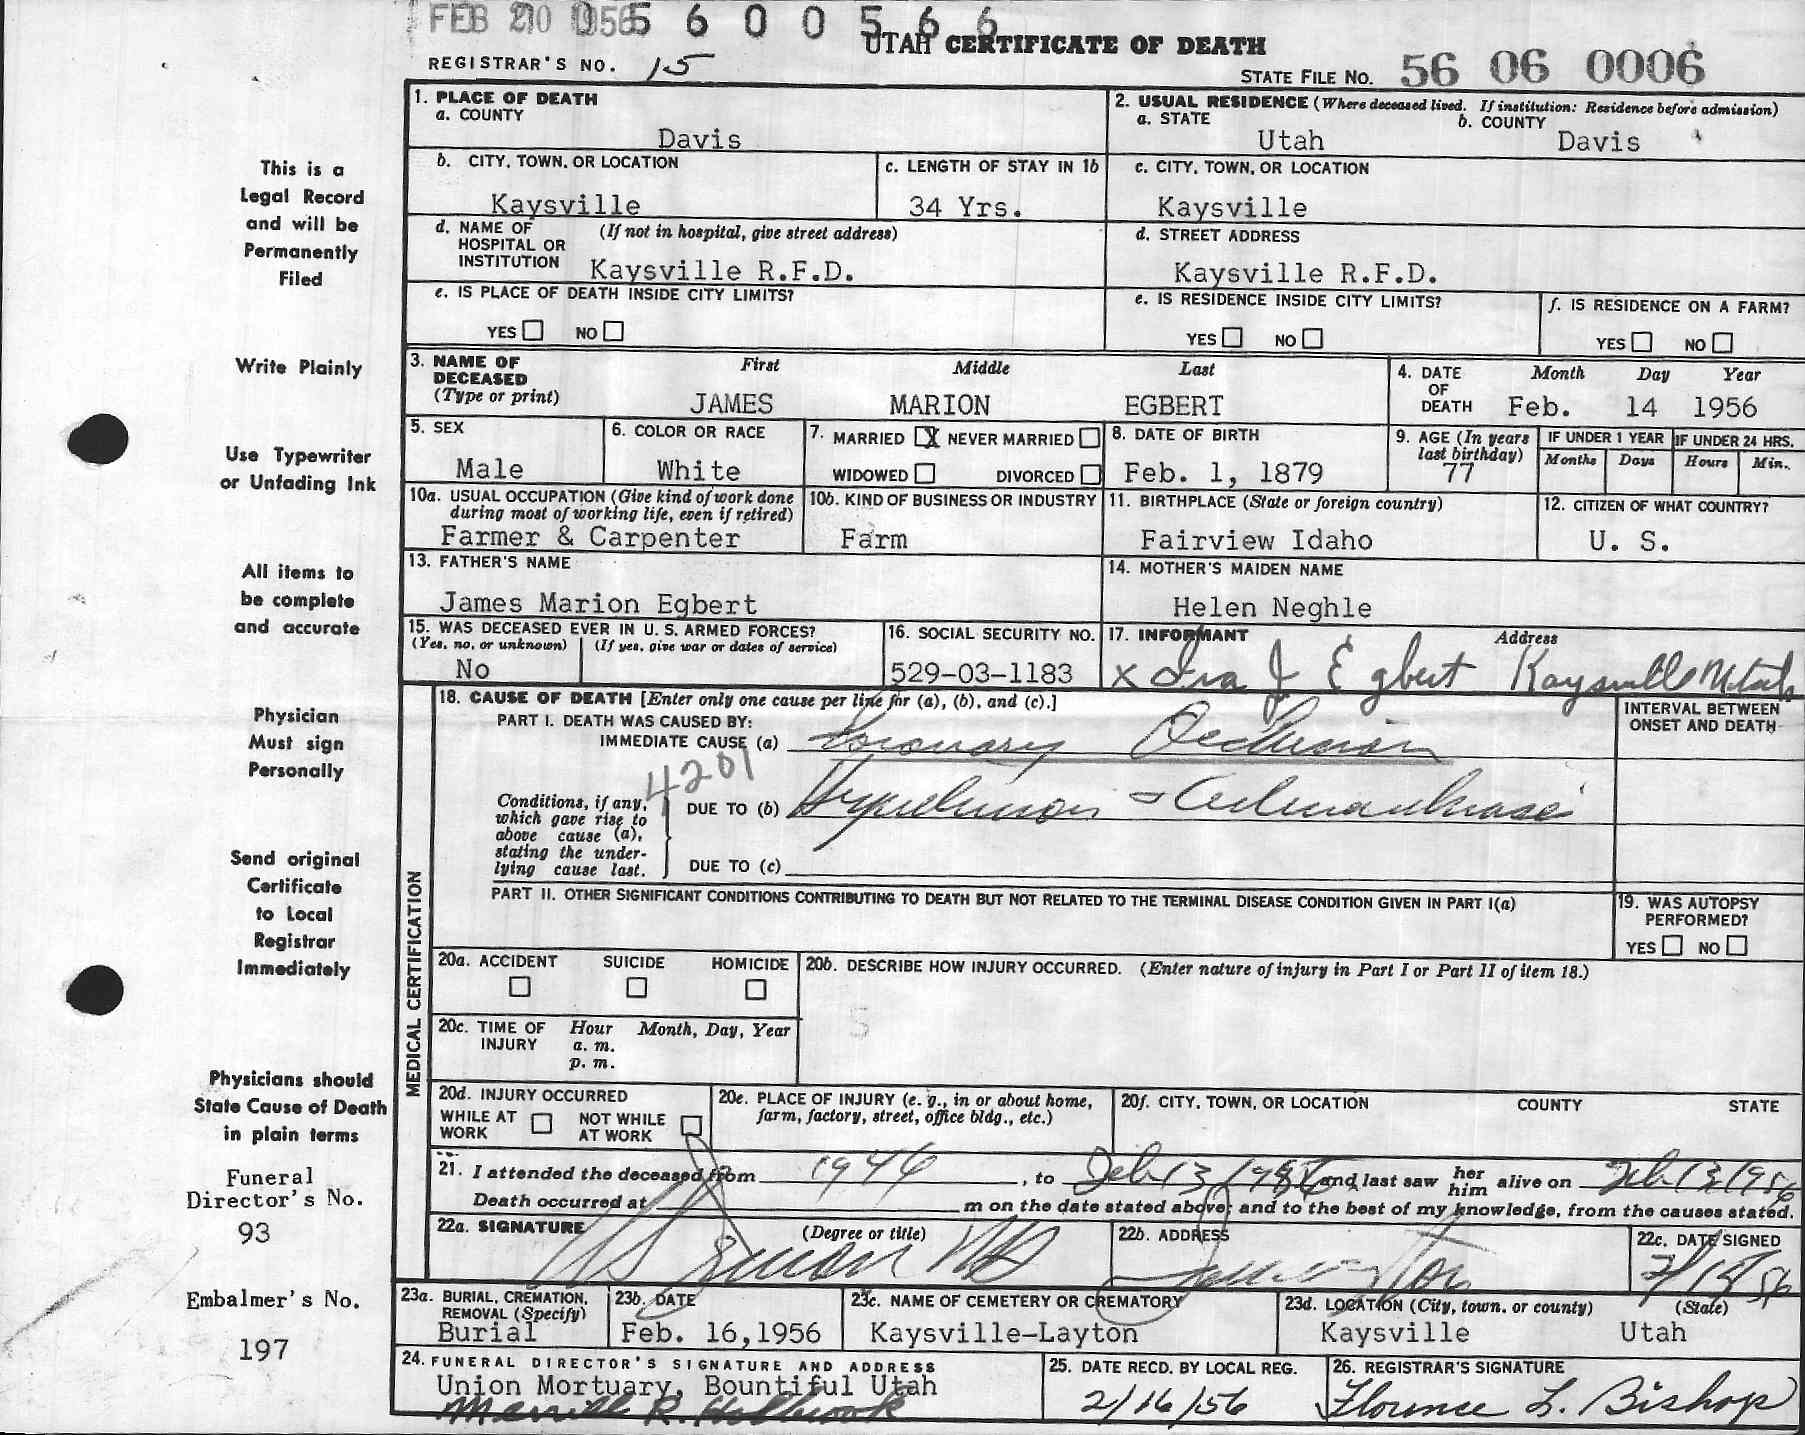 FEB 20 1956 5600566
UTAH CERTIFICATE OF DEATH
REGISTRAR'S NO. 15
STATE FILE NO. 56 06 0006
1. PLACE OF DEATH
a. COUNTY
Davis
2. USUAL RESIDENCE (Where deceased lived. If institution: Residence before admission)
a. STATE b. COUNTY
Utah Davis
b. CITY, TOWN, OR LOCATION
Kaysville
c. LENGTH OF STAY IN 1b
34 Yrs.
c. CITY, TOWN, OR LOCATION
Kaysville
d. NAME OF HOSPITAL OR INSTITUTION (If not in hospital, give street address)
Kaysville R.F.D.
d. STREET ADDRESS
Kaysville R.F.D.
e. IS PLACE OF DEATH INSIDE CITY LIMITS?
YES NO
e. IS RESIDENCE INSIDE CITY LIMITS?
YES NO
f. IS RESIDENCE ON A FARM?
YES NO
3. NAME OF DECEASED (Type or print)
First Middle Last
JAMES MARION EGBERT
4. DATE OF DEATH
Month Day Year
Feb. 14 1956
5. SEX
Male
6. COLOR OR RACE
White
7. MARRIED X NEVER MARRIED
WIDOWED DIVORCED
8. DATE OF BIRTH
Feb. 1, 1879
9. AGE (In years last birthday)
77
IF UNDER 1 YEAR
Months Days
IF UNDER 24 HRS.
Hours Min.
10a. USUAL OCCUPATION (Give kind of work done during most of working life, even if retired)
Farmer & Carpenter
10b. KIND OF BUSINESS OR INDUSTRY
Farm
11. BIRTHPLACE (State or foreign country)
Fairview Idaho
12. CITIZEN OF WHAT COUNTRY?
U. S.
13. FATHER'S NAME
James Marion Egbert
14. MOTHER'S MAIDEN NAME
Helen Neghle
15. WAS DECEASED EVER IN U. S. ARMED FORCES?
(Yes, no, or unknown) (If yes, give war or dates of service)
No
16. SOCIAL SECURITY NO.
529-03-1183
17. INFORMANT Address
x Iva J Egbert Kaysville Utah
18. CAUSE OF DEATH [Enter only one cause per line for (a), (b), and (c).]
PART I. DEATH WAS CAUSED BY:
IMMEDIATE CAUSE (a) Coronary Occlusion
4201
Conditions, if any, which gave rise to above cause (a), stating the underlying cause last.
DUE TO (b) Hypertension
DUE TO (c)
INTERVAL BETWEEN ONSET AND DEATH
PART II. OTHER SIGNIFICANT CONDITIONS CONTRIBUTING TO DEATH BUT NOT RELATED TO THE TERMINAL DISEASE CONDITION GIVEN IN PART I(a)
19. WAS AUTOPSY PERFORMED?
YES NO
MEDICAL CERTIFICATION
20a. ACCIDENT SUICIDE HOMICIDE
20b. DESCRIBE HOW INJURY OCCURRED. (Enter nature of injury in Part I or Part II of item 18.)
5
20c. TIME OF INJURY Hour Month, Day, Year
a. m.
p. m.
20d. INJURY OCCURRED
WHILE AT WORK NOT WHILE AT WORK
20e. PLACE OF INJURY (e. g., in or about home, farm, factory, street, office bldg., etc.)
20f. CITY, TOWN, OR LOCATION COUNTY STATE
21. I attended the deceased from 1946, to Feb 13 1956 and last saw her him alive on Feb 13 1956
Death occurred at m on the date stated above; and to the best of my knowledge, from the causes stated.
22a. SIGNATURE (Degree or title)
22b. ADDRESS
22c. DATE SIGNED
2/15/56
23a. BURIAL, CREMATION, REMOVAL (Specify)
Burial
23b. DATE
Feb. 16,1956
23c. NAME OF CEMETERY OR CREMATORY
Kaysville-Layton
23d. LOCATION (City, town, or county) (State)
Kaysville Utah
24. FUNERAL DIRECTOR'S SIGNATURE AND ADDRESS
Union Mortuary, Bountiful Utah
Merrill R. Holbrook
25. DATE RECD. BY LOCAL REG.
2/16/56
26. REGISTRAR'S SIGNATURE
Florence L. Bishop
This is a
Legal Record
and will be
Permanently
Filed
Write Plainly
Use Typewriter
or Unfading Ink
All items to
be complete
and accurate
Physician
Must sign
Personally
Send original
Certificate
to Local
Registrar
Immediately
Physicians should
State Cause of Death
in plain terms
Funeral
Director's No.
93
Embalmer's No.
197